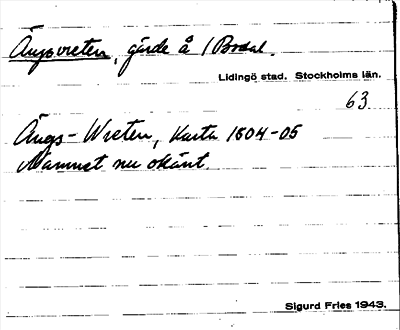 Ängsvreten, gärde å 1 Bodal.
Lidingö stad. Stockholms län.
63
Ängs-Wreten, Karta 1804-05
Namnet nu okänt.
Sigurd Fries 1943.